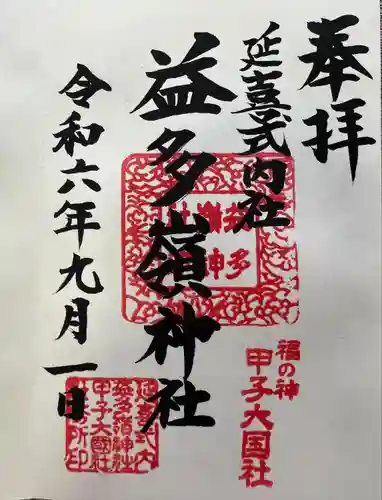 奉拝
延喜式内社
益多嶺神社
令和六年九月一日
福の神
甲子大国社
延喜式内
益多嶺神社
甲子大國社